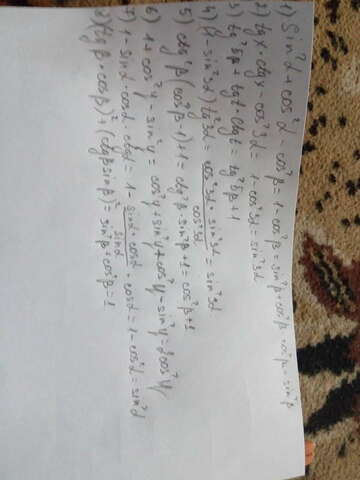 1) Sin²α + cos²α - cos²β = 1 - cos²β = sin²β + cos²β - cos²β = sin²β
2) tgx · ctgx - cos²3α = 1 - cos²3α = sin²3α
3) tg²5β + tgt · ctgt = tg²5β + 1
4) (1 - sin²3α) tg²3α = cos²3α · sin²3α / cos²3α = sin²3α
5) ctg²β (cos²β - 1) + 1 = - ctg²β · sin²β + 1 = cos²β + 1
6) 1 + cos²y - sin²y = cos²y + sin²y + cos²y - sin²y = 2cos²y
7) 1 - sinα · cosα · ctgα = 1 - sinα · cosα / sinα · cosα = 1 - cos²α = sin²α
8) (tgβ · cosβ)² + (ctgβ sinβ)² = sin²β + cos²β = 1